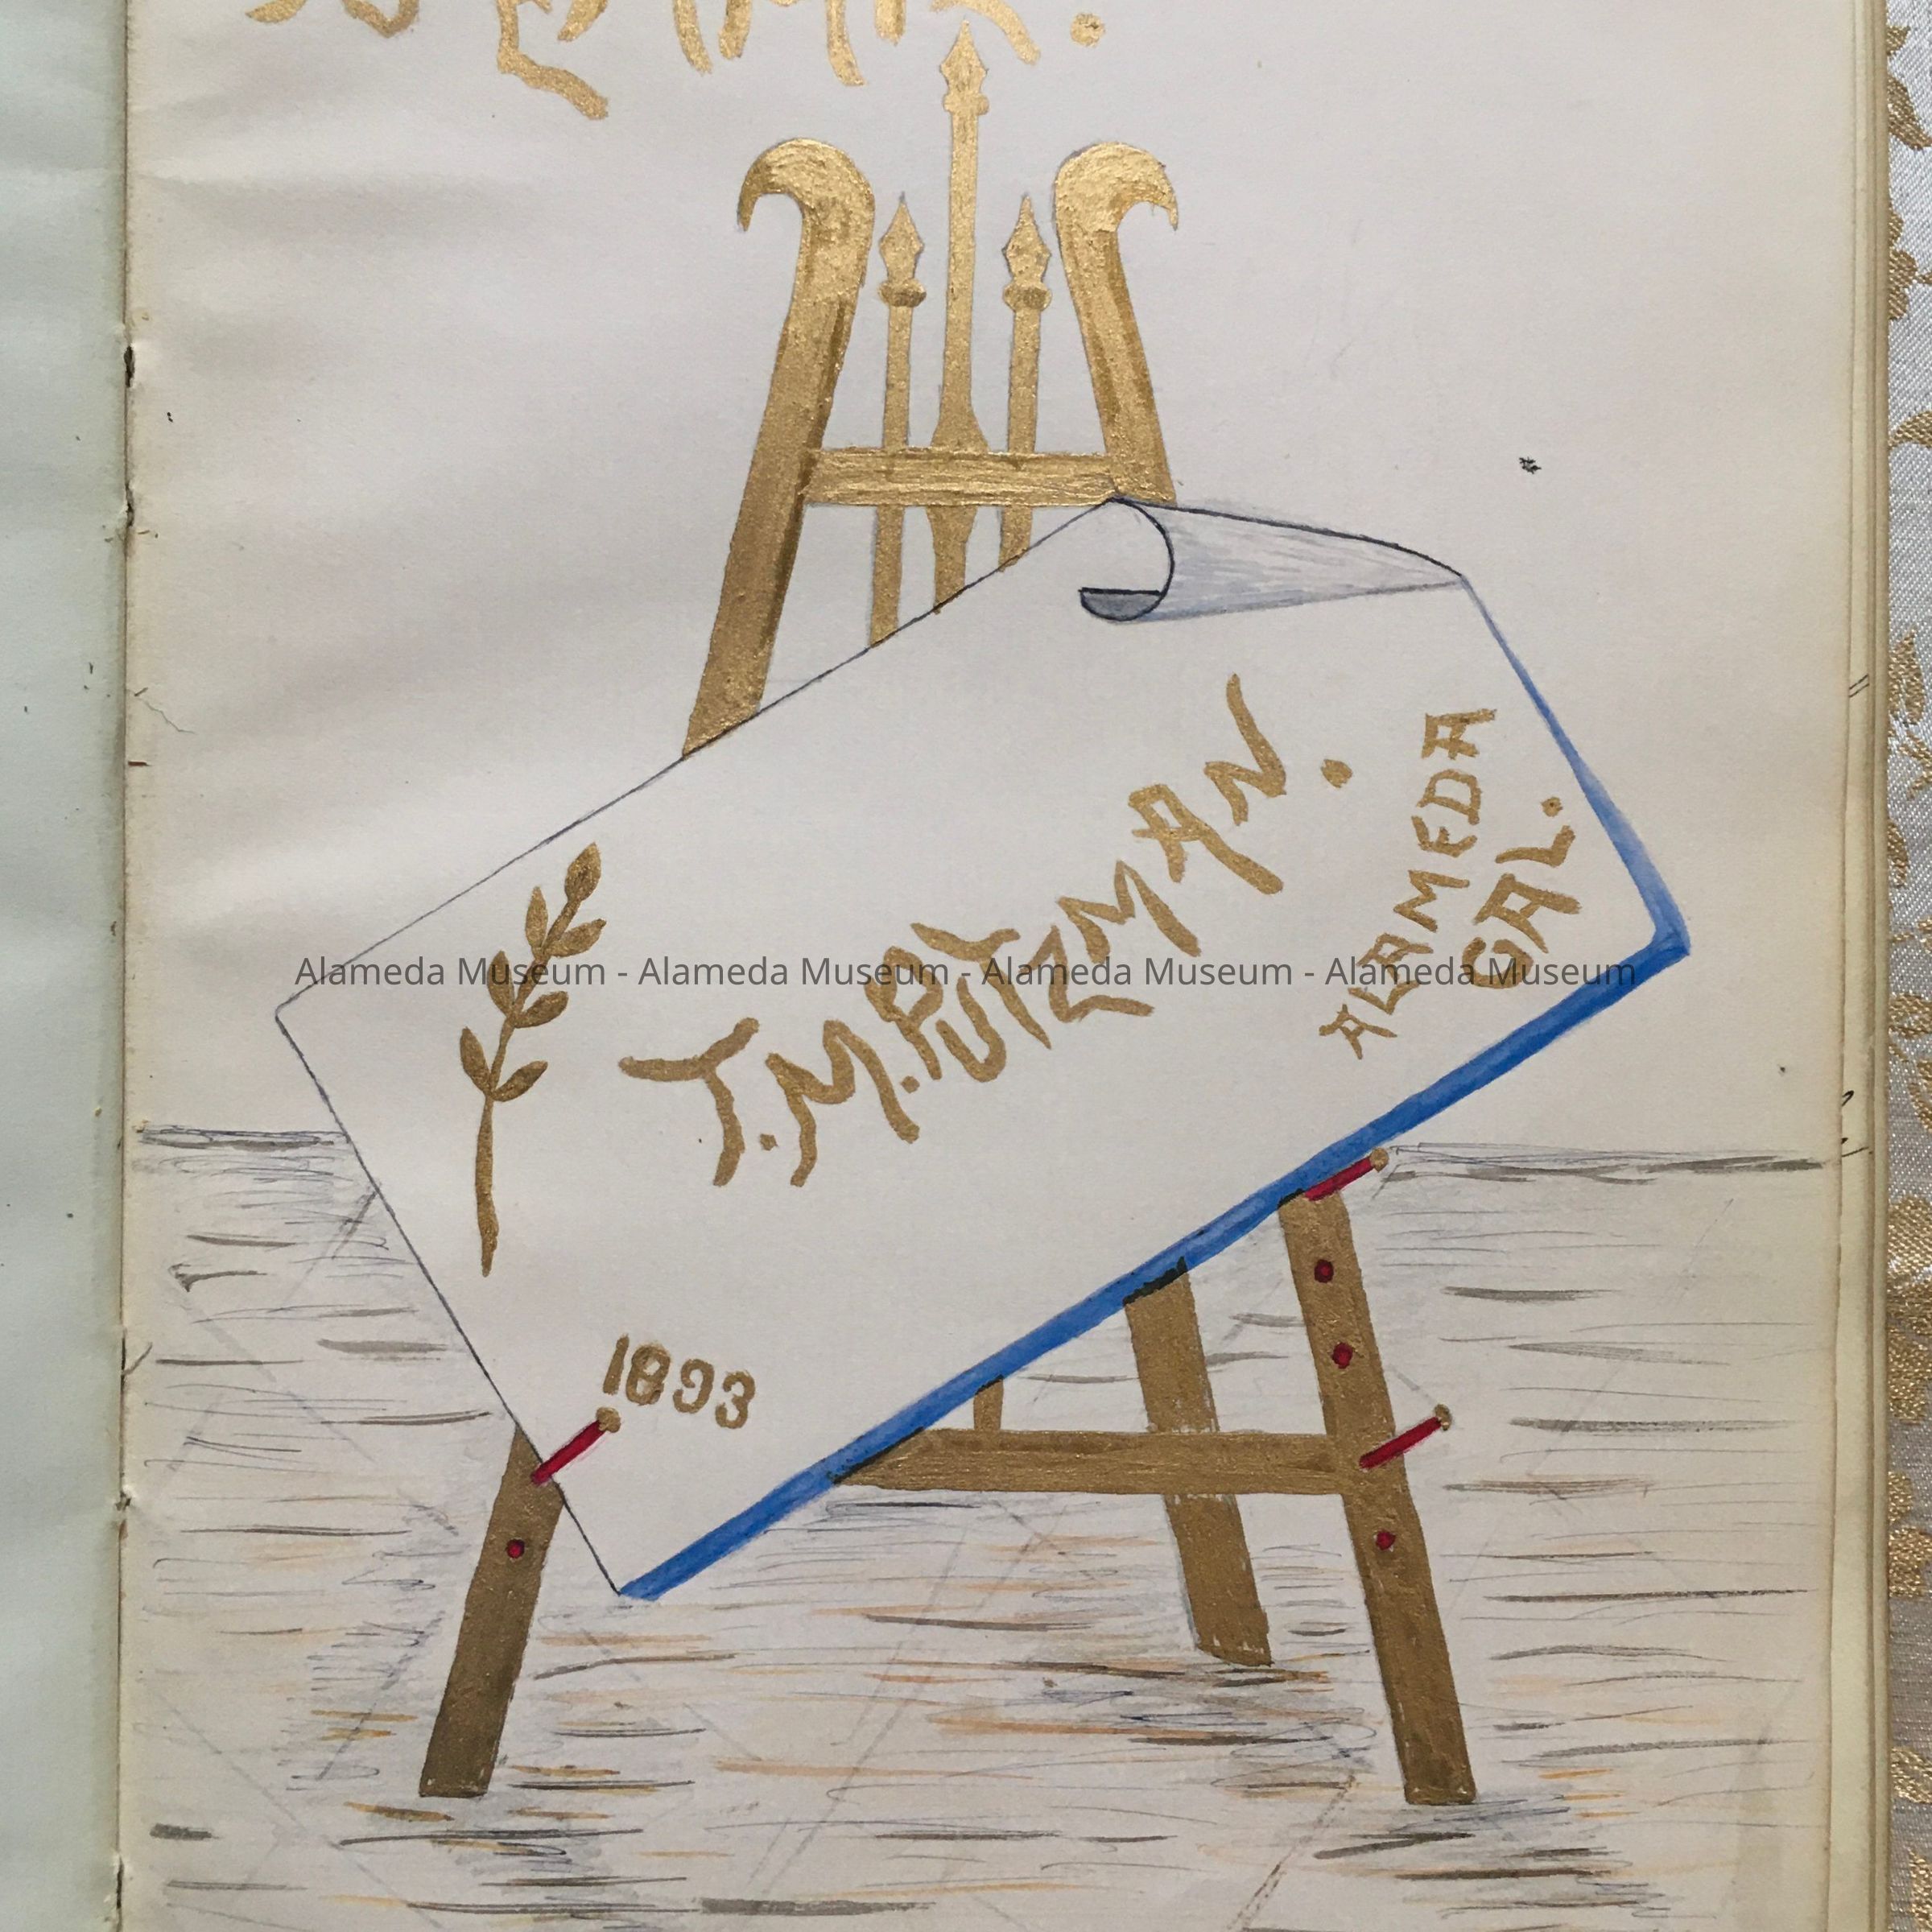 T.M.PUTZMAN.
ALAMEDA
CAL.
1893
Alameda Museum - Alameda Museum - Alameda Museum - Alameda Museum